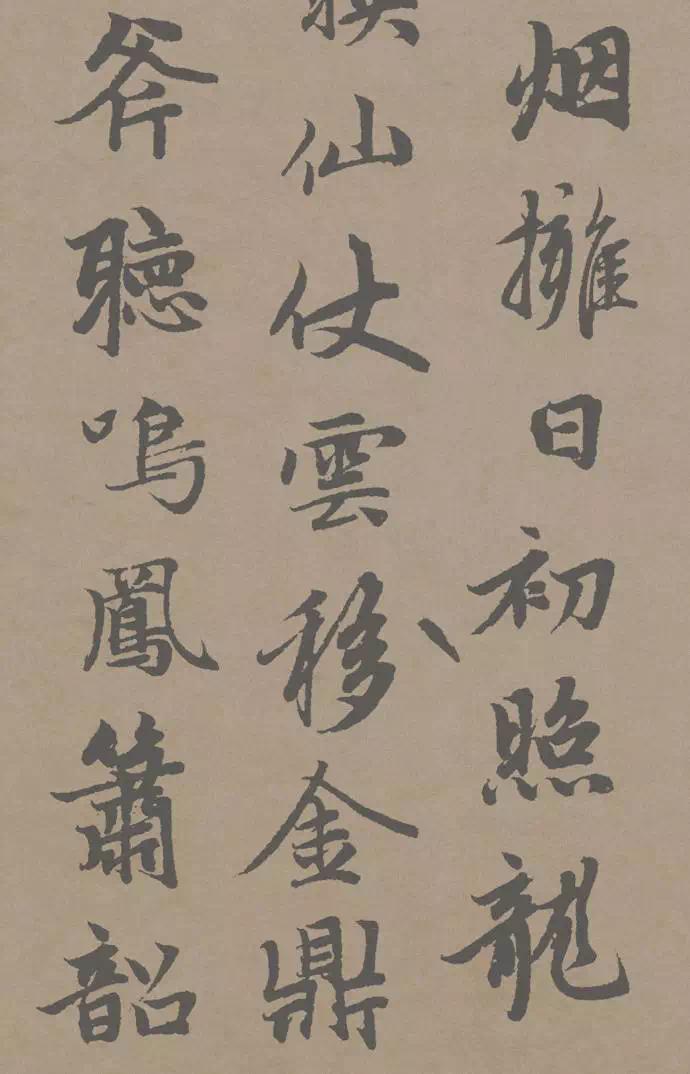 烟擁日初照龍
仙仗雲移金鼎
斧聽鳴鳳簫韶